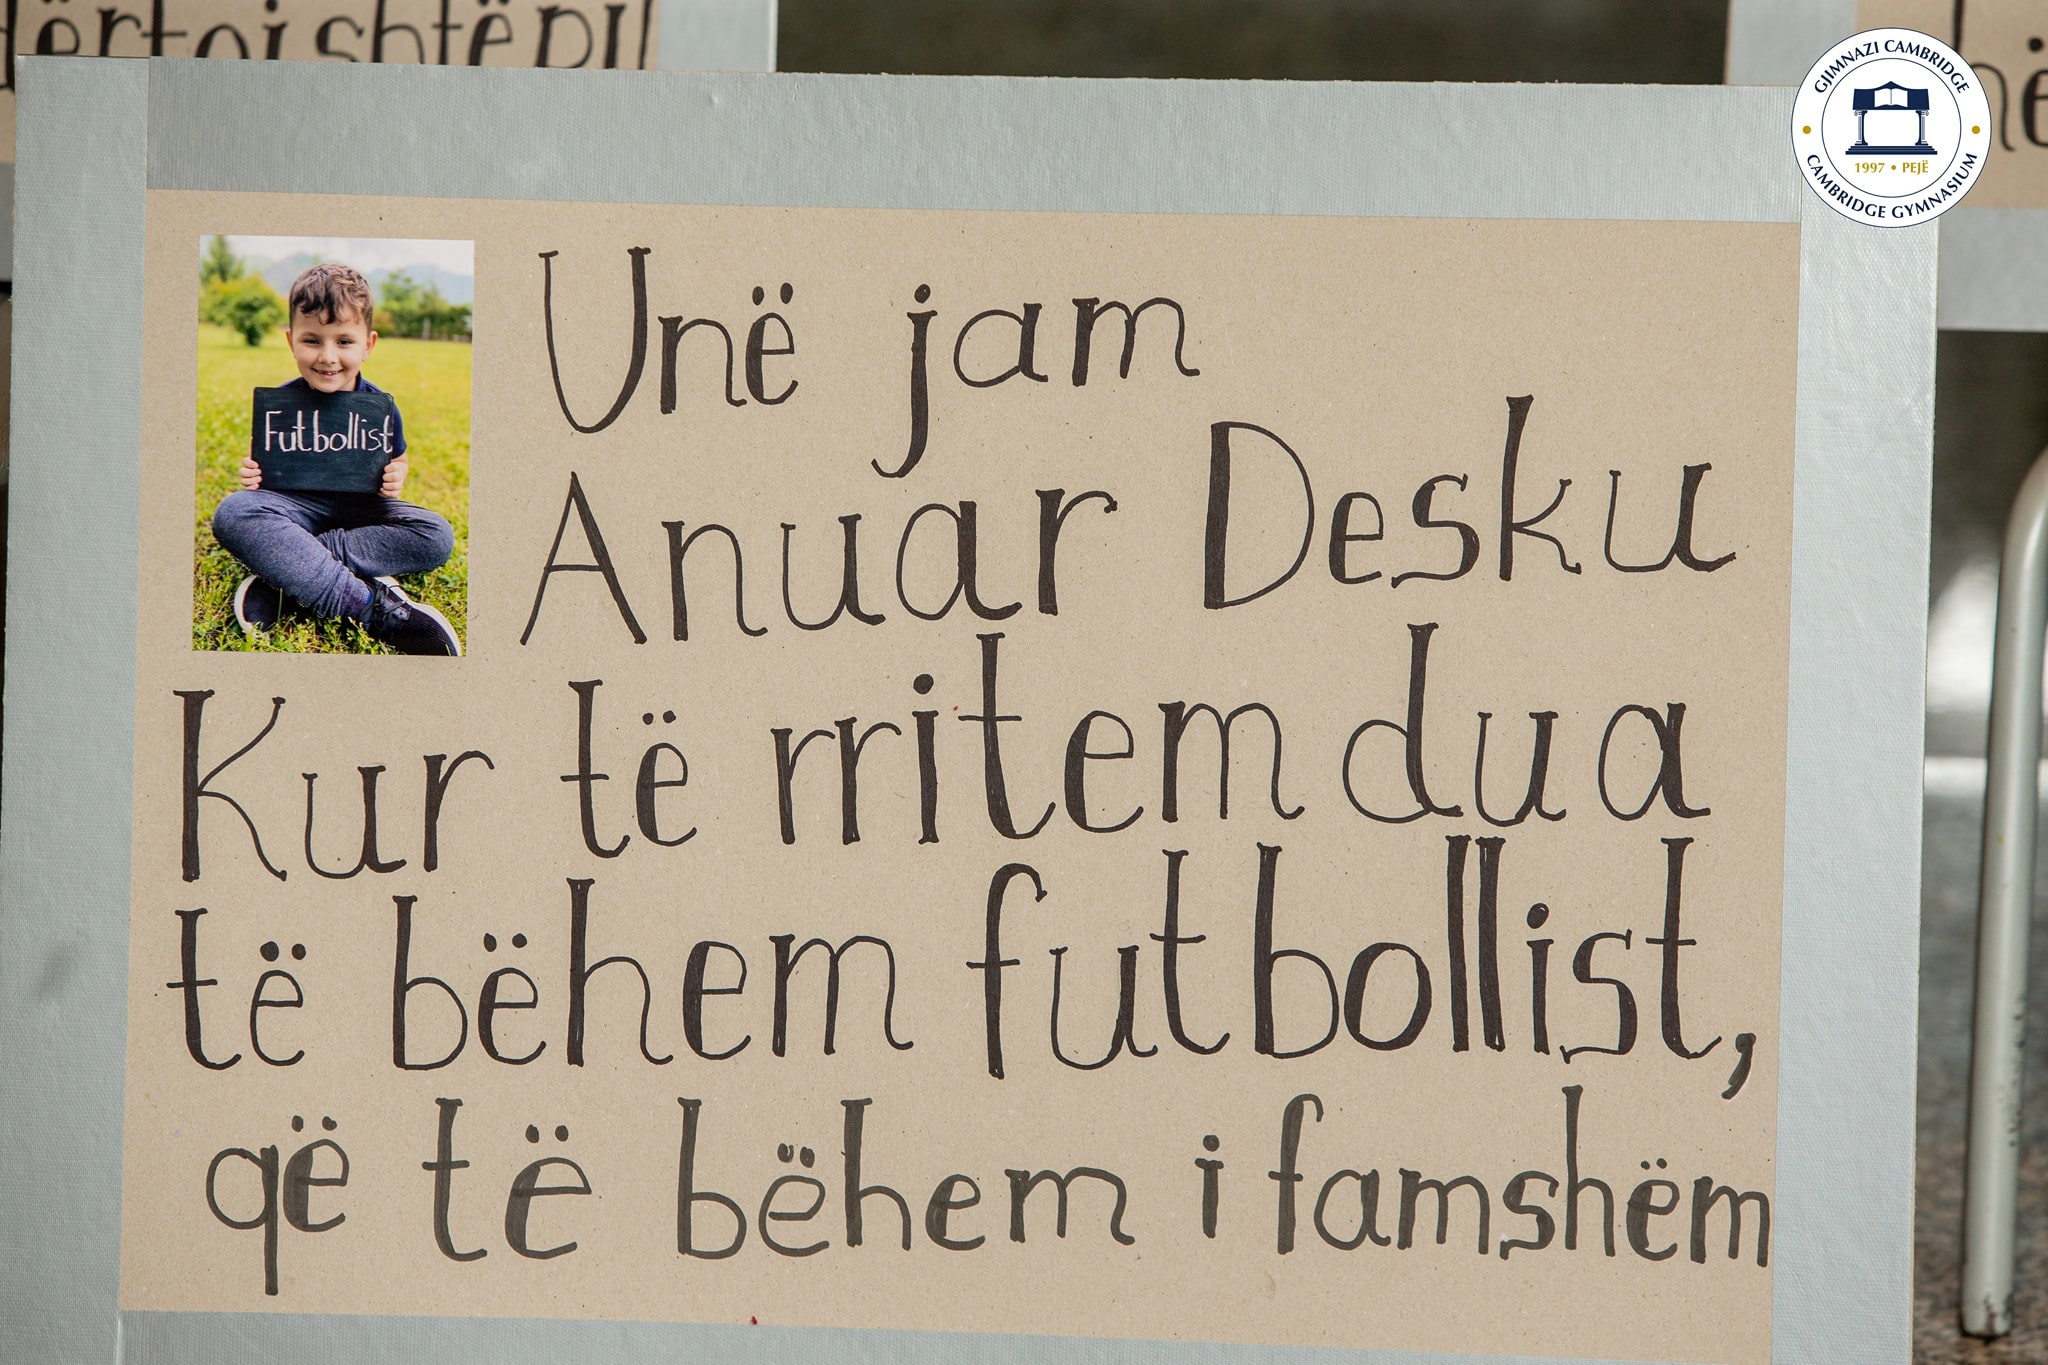 shtëpi
GJIMNAZI CAMBRIDGE
1997 • PEJË
CAMBRIDGE GYMNASIUM
Futbollist
Unë jam
Anuar Desku
Kur të rritem dua
të bëhem futbollist,
që të bëhem i famshëm